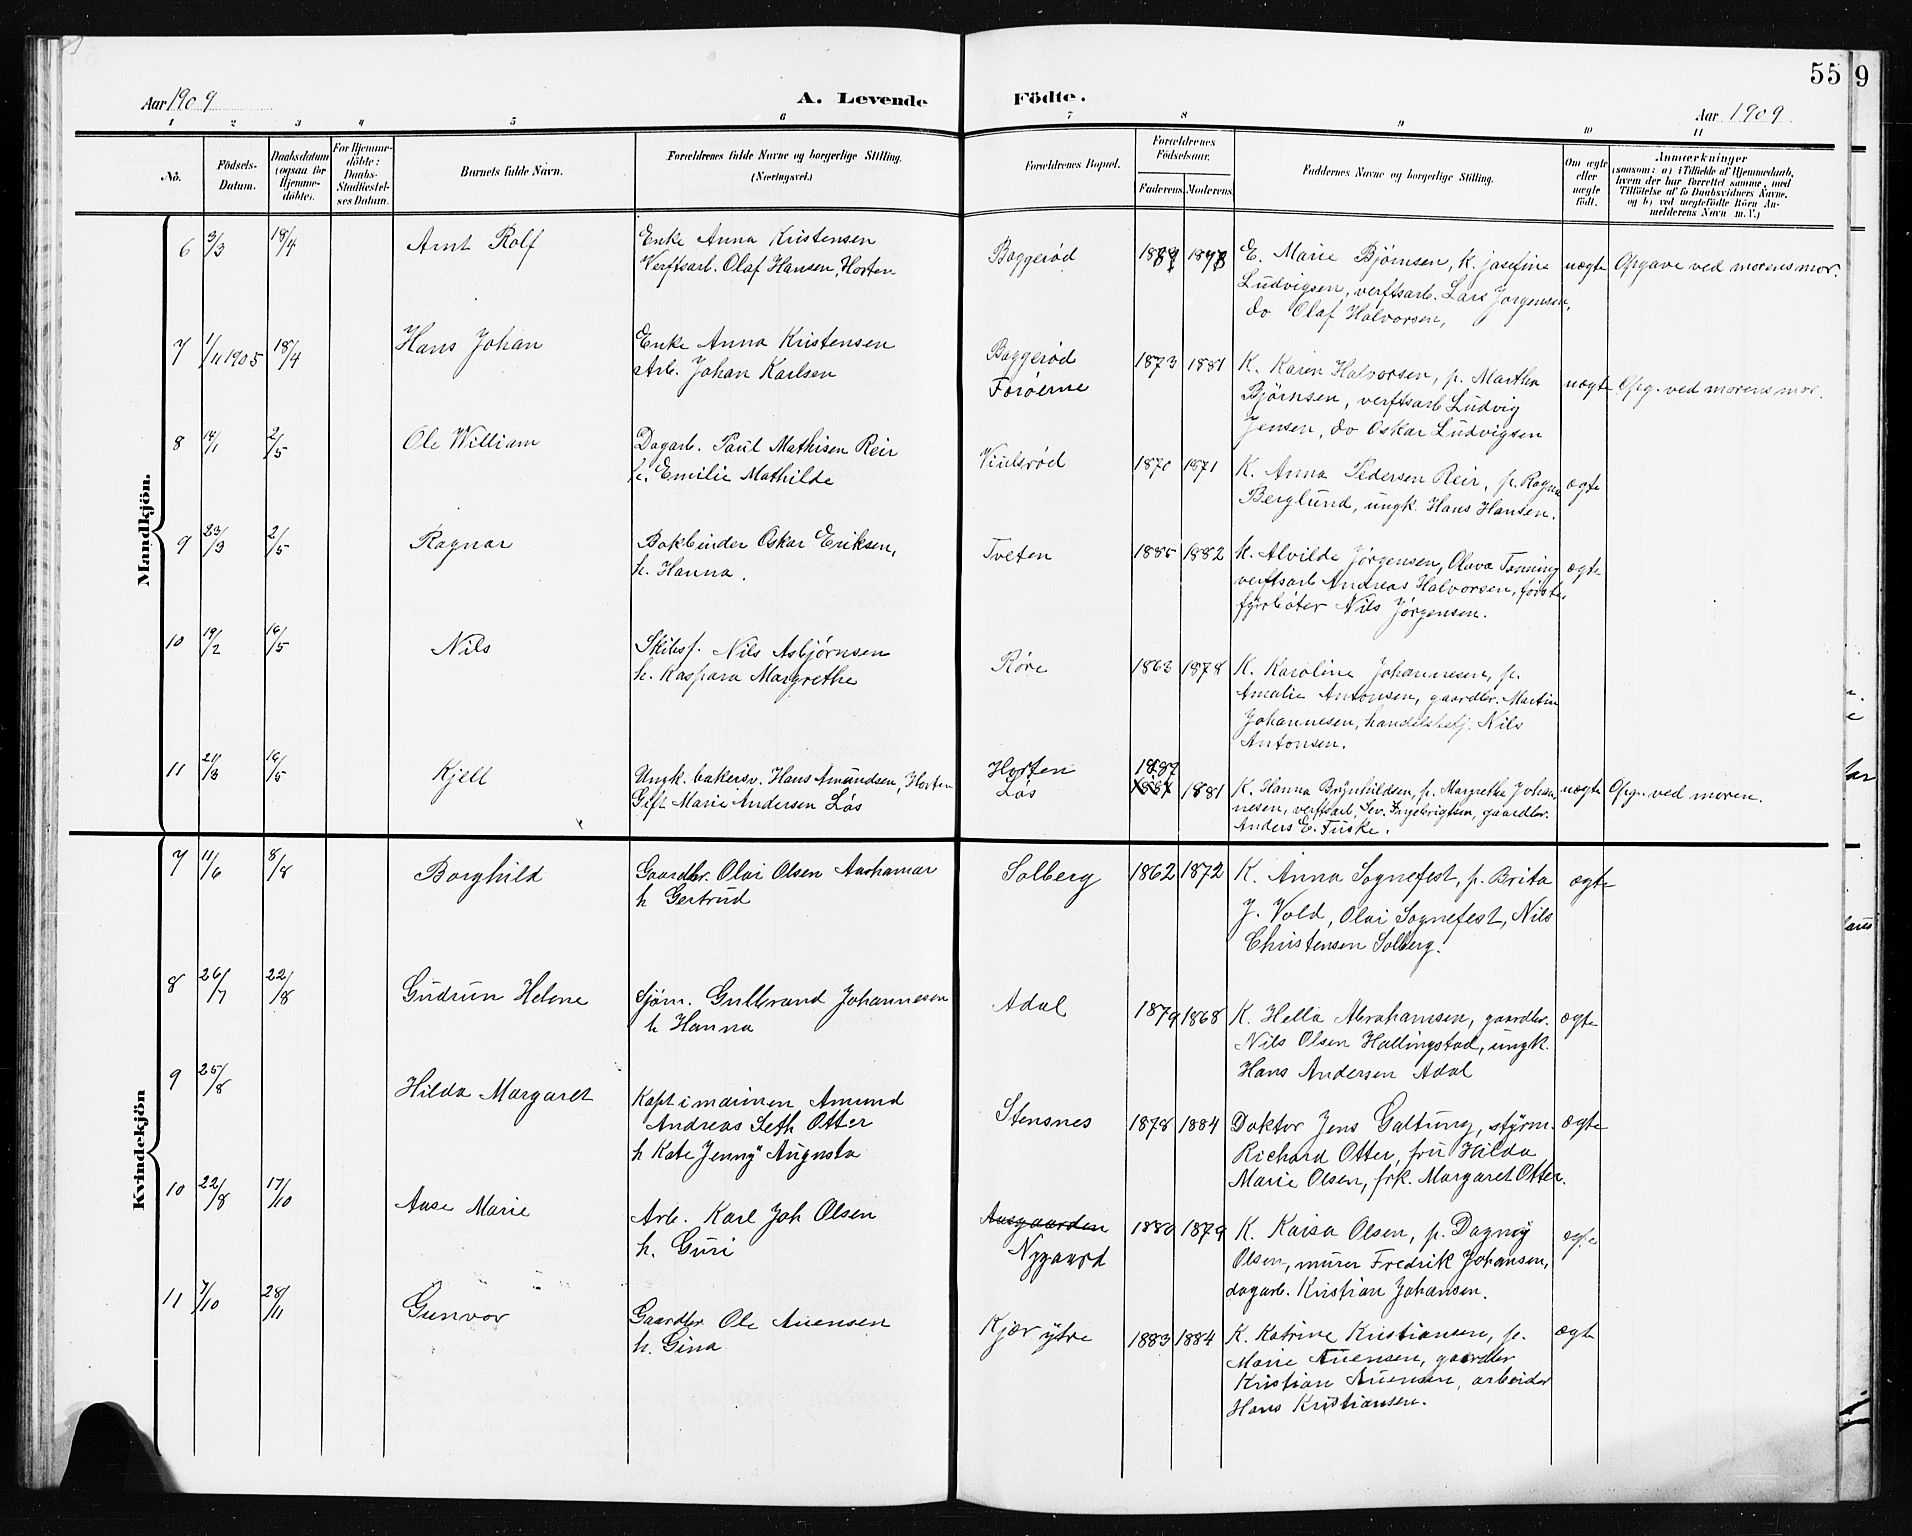 55
9
Aar 1909
A. Levende Födte.
Aar 1909
1 2 3 4 5 6 7 8 9 10 11
No.
Födsels-
Datum.
Daabsdatum
(ogsaa for
Hjemme-
döbte).
For Hjemme-
döbte:
Daabs-
Stadfæstel-
ses Datum.
Barnets fulde Navn.
Forældrenes fulde Navne og borgerlige Stilling.
(Næringsvei.)
Forældrenes Bopæl.
Forældrenes
Födselsaar.
Faderens Moderens
Faddernes Navne og borgerlige Stilling.
Om ægte
eller
uægte
födt.
Anmærkninger
(saasom: a) i Tilfælde af Hjemmedaab,
hvem der har forrettet samme, med
Tilföielse af to Daabsvidners Navne,
og b) ved uægtefödte Börn An-
melderens Navn m. V.)
Mandkjön.
6 3/3 18/4 Arnt Rolf
Enke Anna Kristensen
Verftsarb. Olaf Hansen, Horten
Baggerød
E. Marie Bjørnsen, K. Josefine
Ludvigsen, verftsarb. Lars Jørgensen,
do Olaf Halvorsen,
uægte Opgave ved morens mor.
7 1/11 1905 18/4 Hans Johan
Enke Anna Kristensen
Arb. Johan Karlsen
Baggerød
Forøerne
1873 1881
K. Karen Halvorsen, p. Martha
Bjørnsen, verftsarb Ludvig
Jensen, do Oskar Ludvigsen
uægte Opg. ved morens mor.
8 14/1 2/5 Ole William
Dagarb. Paul Mathisen Reir
h. Emilie Mathilde
1870 1871
K. Anna Pedersen Reir, p. Ragna
Berglund, ungk. Hans Hansen.
ægte
9 23/3 2/5 Ragnar
Bokbinder Oskar Eriksen,
h. Hanna.
Tveten
1885 1882
K. Alvilde Jørgensen, Olava Tanning
verftsarb Andreas Halvorsen, første,
fyrbøter Nils Jørgensen.
ægte
10 19/2 16/5 Nils
Skibsf. Nils Asbjørnsen
h. Kaspara Margrethe
Røre
1863 1878
K. Karoline Johannesen, p.
Amalie Antonsen, gaardbr. Martin
Johannesen, handelsbetj. Nils
Antonsen.
11 21/3 16/5 Kjell
Ungk. bakersv. Hans Amundsen, Horten
Gift Marie Andersen Løs
Horten
Løs
1887
1881
K. Hanna Brynhildsen, p. Margrethe Johan-
nesen, verftsarb. Sev. Ingebrigtsen, gaardbr.
Anders E. Fuske.
uægte Opg. ved moren.
Kvindekjön
7 11/6 8/8 Borghild
Gaardbr. Olai Olsen Aarhamar
h Gertrud
Solberg
1862 1872
K. Anna Sognefest, p. Brita
J. Vold, Olai Sognefest, Nils
Christensen Solberg.
ægte
8 26/7 22/8 Gudrun Helene
Sjøm. Gulbrand Johannesen
h Hanna
Adal
1879 1868
K. Hella Abrahamsen, gaardbr.
Nils Olsen Hallingstad, ungk.
Hans Andersen Adal
ægte
9 25/8 Hilda Margaret
Kapt i marinen Amund
Andreas Seth Otter
h Kate "Jenny" Augusta
Stensnes
1878 1884
Doktor Jens Galtung, styrm.
Richard Otter, fru Hilda
Marie Olsen, frk. Margaret Otter.
ægte
10 22/8 17/10 Aase Marie
Arb. Karl Joh Olsen
h. Guri
Aasgaarden
Nygaard
1880 1879
K. Kaisa Olsen, p. Dagny
Olsen, murer Fredrik Johansen,
dagarb. Kristian Johansen.
egte
11 7/10 28/11 Gunvor
Gaardbr Ole Auensen
h. Gina
Kjær ytre
1883 1884
K. Katrine Kristiansen, p.
Marie Auensen, gaardbr
Kristian Auensen, arbeider
Hans Kristiansen.
ægte